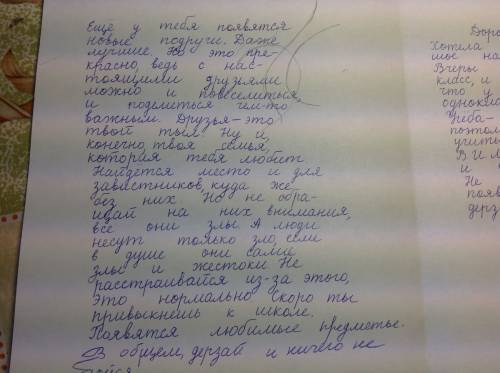 Еще у тебя появятся
новые подруги. Даже
лучшие. Но это пре-
красно, ведь с нас-
тоящими друзьями
можно и повеселиться,
и поделиться чем-то
важным. Друзья – это
твой тыл. Ну и,
конечно, твоя семья,
которая тебя любит
Найдется место и для
завистников, куда же
без них Но не обра-
щай на них внимания,
все они злы А люди
несут только зло, если
в душе они сами
злы и жестоки Не
расстраивайся из-за этого,
это нормально Скоро ты
привыкнешь к школе.
Появятся любимые предметы.
В общем, дерзай и ничего не
Хотела
мое на
Вчеры
класс, и
что у
одноки
Учеба –
поэтом
учить
В И.М
и
Не
появ
дерз